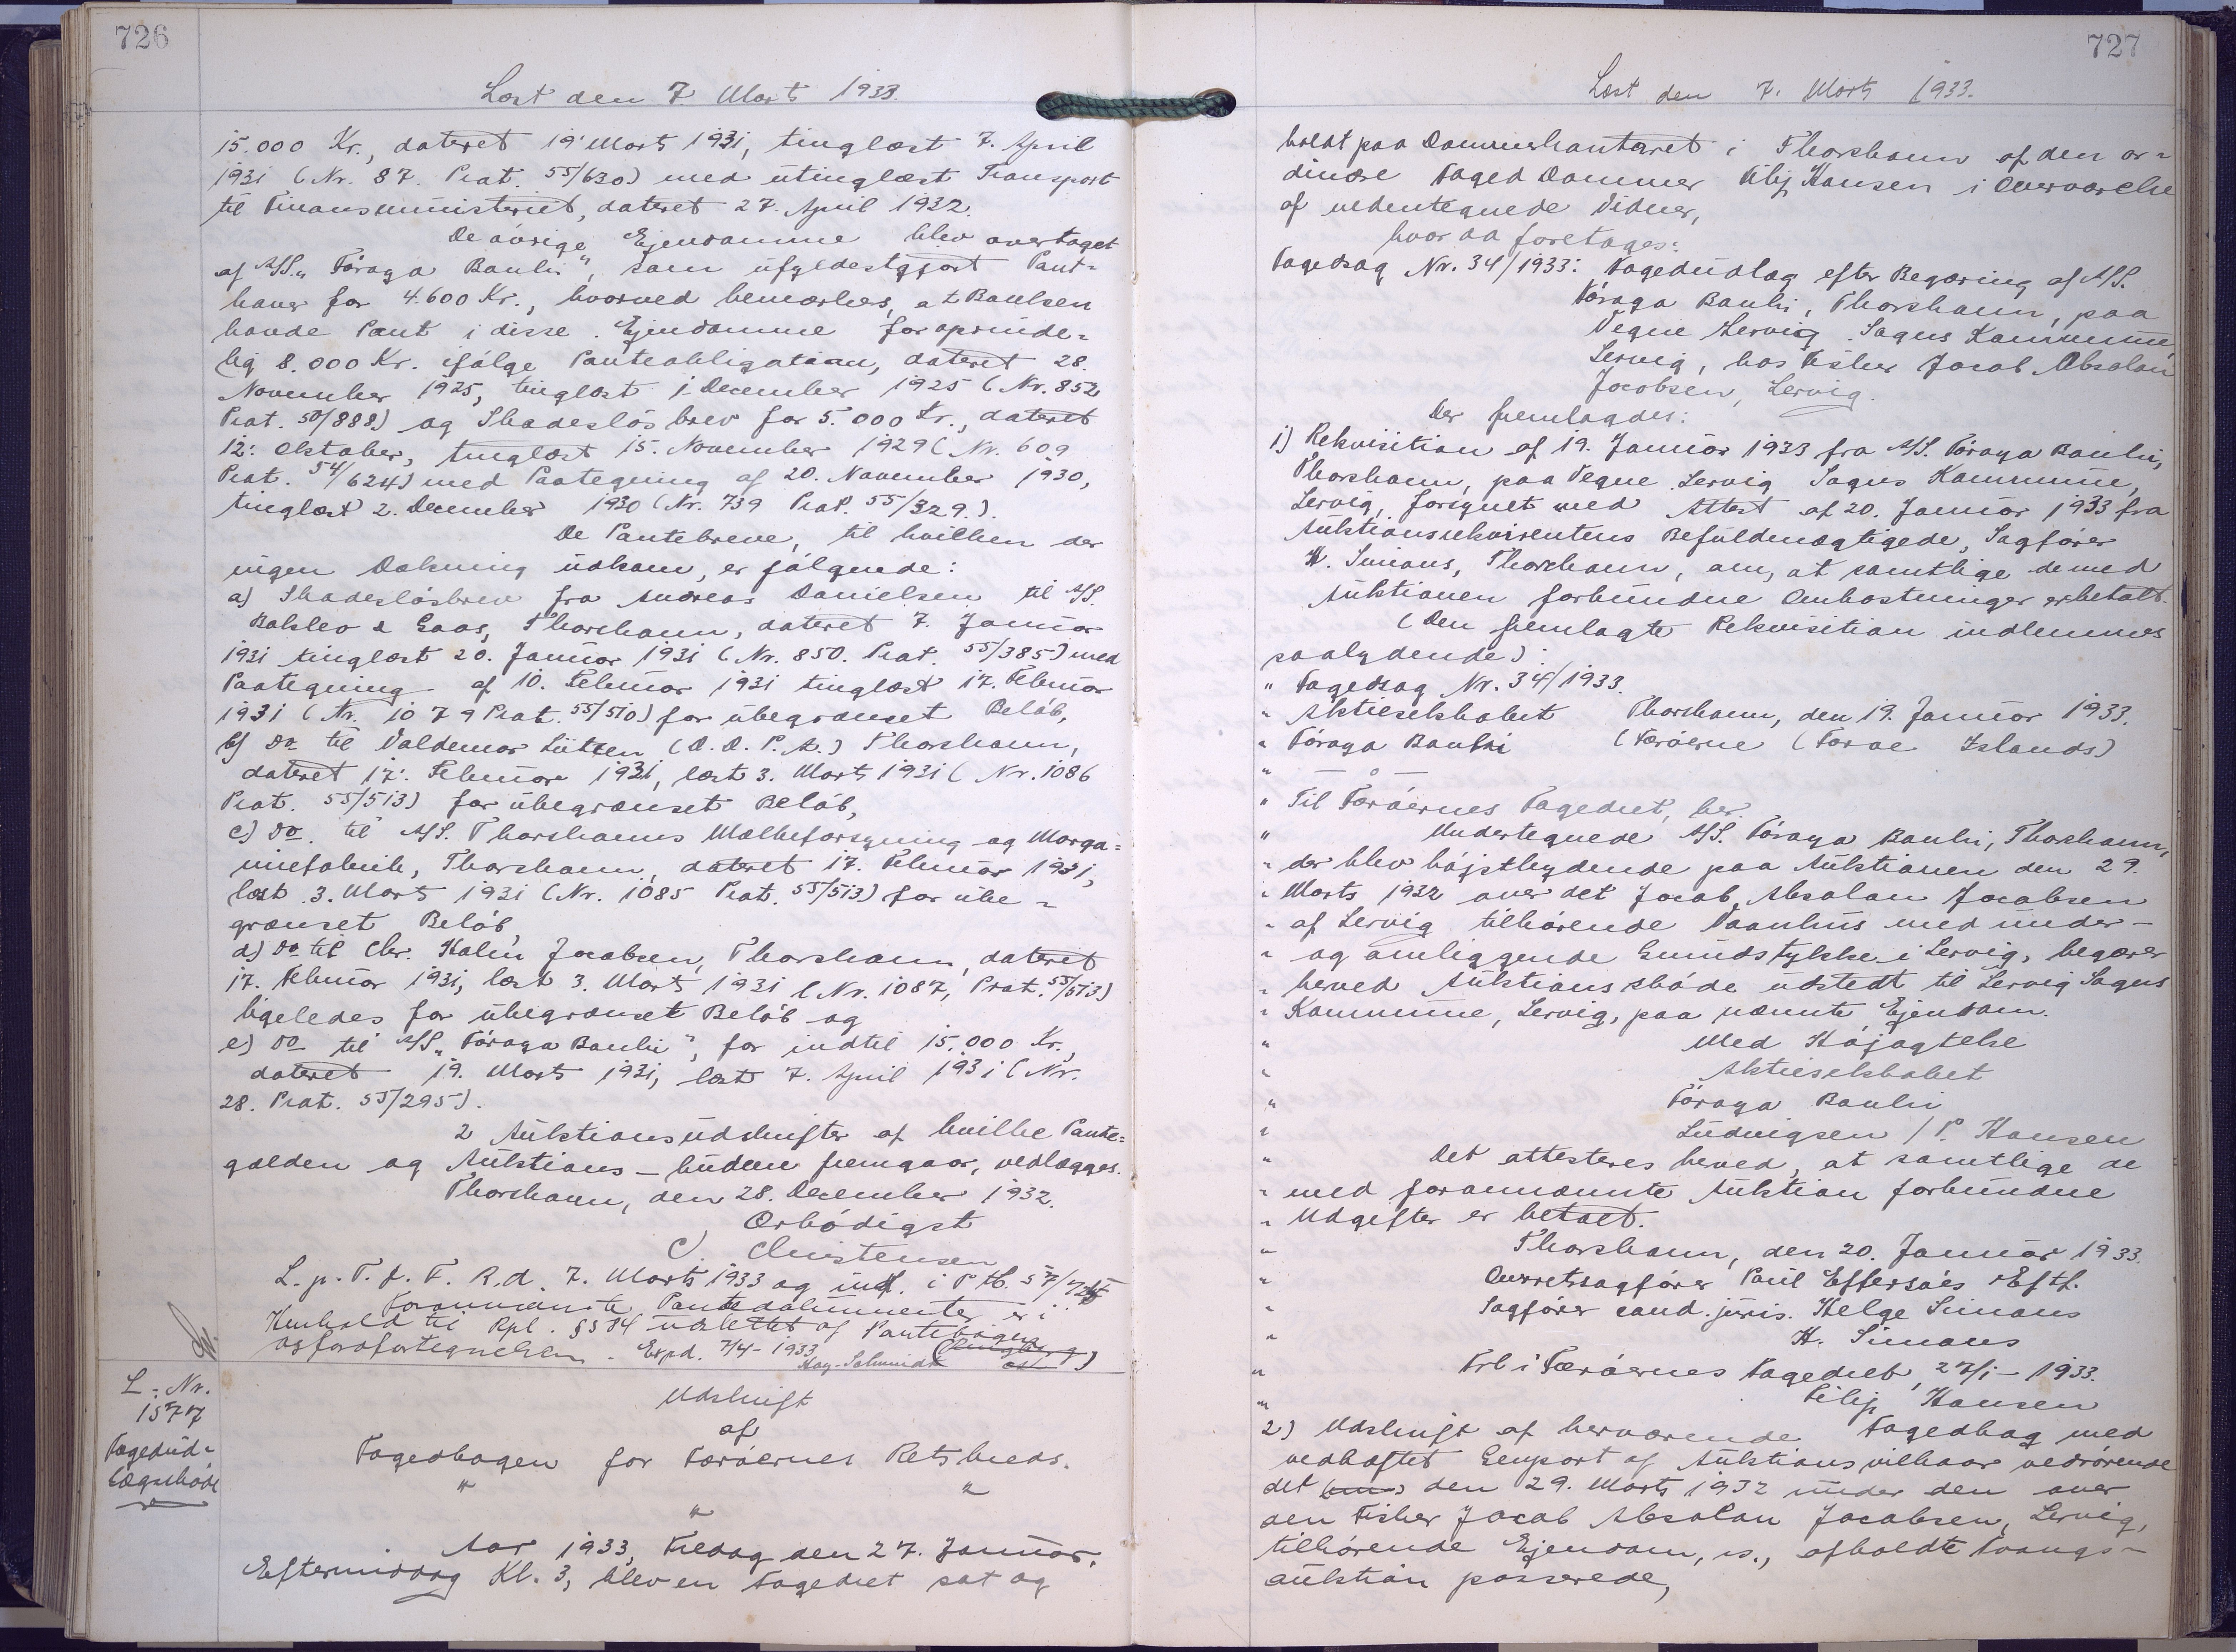 726
Læst den 7 Marts 1933.
15.000 Kr., dateret 19' Marts 1931, tinglæst 7. April
1931 (Nr. 87. Prot. 55/630) med utinglæst Transport
til Finansministeriet, dateret 27. April 1932.
De øvrige Ejendomme blev overtaget
af A/S. "Föroya Banki", som ufyldestgjort Pant-
haver for 4.600 Kr., hvorved bemærkes, at Banken
havde Pant i disse Ejendomme for oprinde-
lig 8.000 Kr. ifølge Panteobligation, dateret 28.
November 1925, tinglæst 1 December 1925 (Nr. 852
Prot. 50/888) og Skadesløsbrev for 5.000 Kr., dateret
12: Oktober, tinglæst 15. November 1929 (Nr. 609
Prot. 54/624) med Paategning af 20. November 1930,
tinglæst 2. December 1930 (Nr. 739 Prot. 55/329.).
De Pantebreve, til hvilken der
ingen Dækning udkom, er følgende:
a) Skadesløsbrev fra Andreas Danielsen til A/S.
Balslev & Gaas, Thorshavn, dateret 7. Januar
1931 tinglæst 20. Januar 1931 (Nr. 850. Prot. 55/385) med
Paategning af 10. Februar 1931 tinglæst 17. Februar
1931 (Nr. 1079 Prot. 55/510) for ubegrænset Beløb,
b) do til Valdemar Lützen (D. D. P. A.) Thorshavn,
dateret 17. Februar 1931, læst 3. Marts 1931 (Nr. 1086
Prot. 55/513) for ubegrænset Beløb,
c) do. til A/S. Thorshavns Mælkeforsyning og Marga-
rinefabrik, Thorshavn, dateret 17. Februar 1931,
læst 3. Marts 1931 (Nr. 1085 Prot. 55/513) for ube-
grænset Beløb,
d) do til Chr. Holm Jacobsen, Thorshavn, dateret
17. Februar 1931, læst 3. Marts 1931 (Nr. 1087, Prot. 55/513)
ligeledes for ubegrænset Beløb og
e) do til A/S "Föroya Banki", for indtil 15.000 Kr.,
dateret 19. Marts 1931, læst 7. April 1931 (Nr.
28. Prot. 55/295).
2 Auktionsudskrifter af hvilke Pante-
gælden og Auktions-budene fremgaar, vedlægges.
Thorshavn, den 28. December 1932.
Ærbødigst
C. Christensen
L. p. T. f. F. R. d. 7. Marts 1933 og indf. i P tb. 57/725
Forannævnte Pantedokumenter er i
Henhold til Rpl. § 584 udslettet af Pantebøgerne
. Expd. 7/4-1933
Kay-Schmidt
L-Nr.
1577
Fogedud-
lægsskøde
Udskrift
af
Fogedbogen for Færøernes Retskreds.
" " "
Aar 1933, Fredag den 27. Januar,
Eftermiddag Kl. 3, blev en Fogedret sat og
727
Læst den 7. Marts 1933.
holdt paa Dommerkontoret i Thorshavn af den or-
dinære Foged Dommer Filip Hansen i Overværelse
af undertegnede Vidner,
hvor da foretoges:
Fogedsag Nr. 34/1933: Fogedudlæg efter Begæring af A/S.
Föroya Banki, Thorshavn, paa
Vegne Lervig Sogns Kommune
Lervig, hos Fisker Jacob Absolon
Jacobsen, Lervig.
Der fremlagdes:
1) Rekvisition af 19. Januar 1933 fra A/S. Föroya Banki,
Thorshavn, paa Vegne Lervig Sogns Kommune,
Lervig, forsynet med Attest af 20. Januar 1933 fra
Auktionsrekvirentens Befuldmægtigede, Sagfører
H. Simons, Thorshavn, om, at samtlige de med
Auktionen forbundne Omkostninger er betalt.
(Den fremlagte Rekvisition indlemmes
saalydende):
" Fogedsag Nr. 34/1933.
" Aktieselskabet Thorshavn, den 19. Januar 1933.
" Föroya Banki (Færøerne (Faroe Islands)
"
" Til Færøernes Fogedret, her.
" Undertegnede A/S. Föroya Banki, Thorshavn,
" der blev højstbydende paa Auktionen den 29.
" Marts 1932 over det Jacob Absolon Jacobsen
" af Lervig tilhørende Vaanhus med under-
" og omliggende Grundstykke i Lervig, begærer
" herved Auktionsskøde udstedt til Lervig Sogns
" Kommune, Lervig, paa nævnte Ejendom.
" Med Højagtelse
" Aktieselskabet
" Föroya Banki
" Ludvigsen / P. Hansen
" Det attesteres herved, at samtlige de
" med forannævnte Auktion forbundne
" Udgifter er betalt.
" Thorshavn, den 20. Januar 1933.
" Overretssagfører Poul Effersøes Eftf.
" Sagfører cand. juris. Helge Simons
" H. Simons
" Frl i Færøernes Fogedret, 27/1-1933.
" Filip Hansen
2) Udskrift af herværende Fogedbog med
vedhæftet Genpart af Auktionsvilkaar vedrørende
det den 29. Marts 1932 under den over
den Fisker Jacob Absolon Jacobsen, Lervig,
tilhørende Ejendom, is., afholdte Tvangs-
auktion passerede,